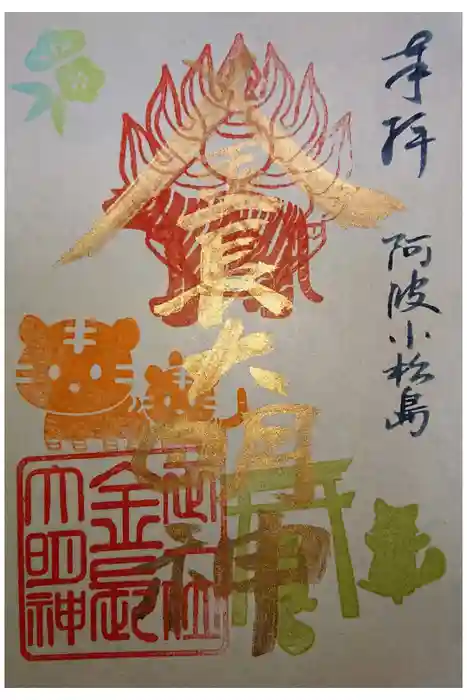 奉拝
阿波小松島
金長大明神
社
金長
大明神